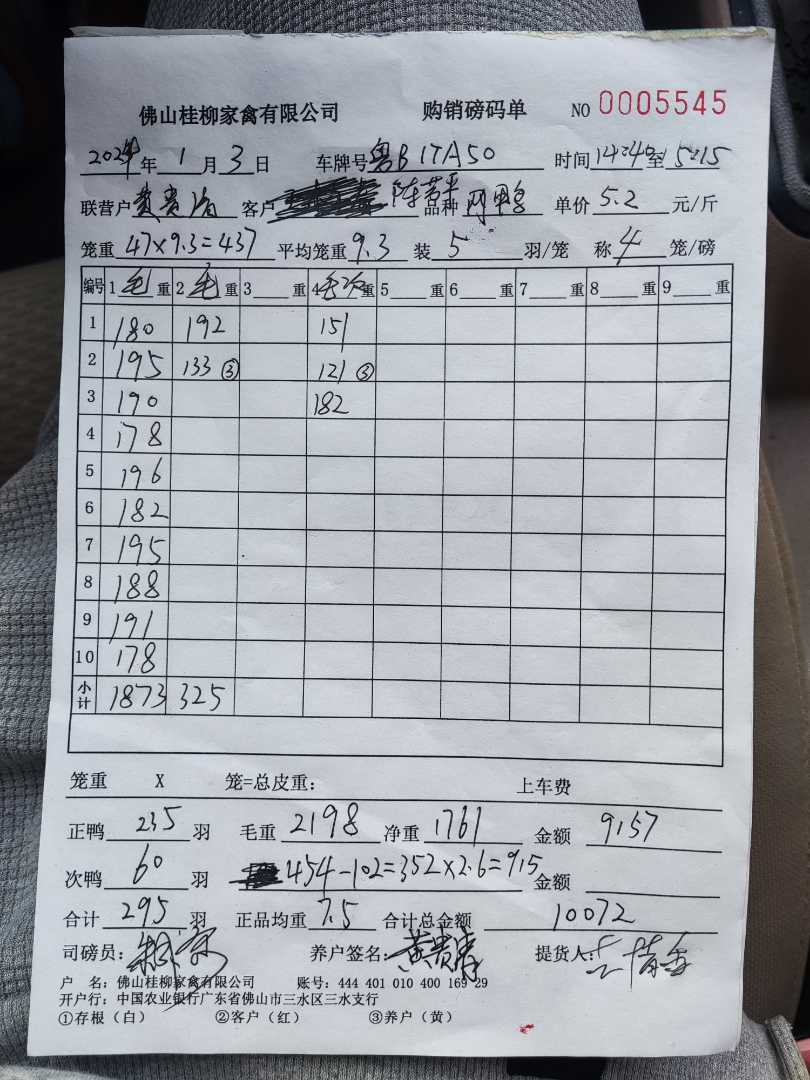 佛山桂柳家禽有限公司 购销磅码单 NO 0005545
年 1 月 3 日 车牌号 粤B17A50 时间 14:40 至 15:15
联营户 黄贵 客户 陈 品种 鸭 单价 5.2 元/斤
笼重 47×9.3=437 平均笼重 9.3 装 5 羽/笼 称 4 笼/磅
编号 1 毛 重 2 毛 重 3 重 4 毛次 重 5 重 6 重 7 重 8 重 9 重
1 180 192 151
2 195 133 ③ 121 ③
3 190 182
4 178
5 196
6 182
7 195
8 188
9 191
10 178
小计 1873 325
笼重 X 笼=总皮重: 上车费
正鸭 235 羽 毛重 2198 净重 1761 金额 9157
次鸭 60 羽 454-102=352×2.6=915 金额
合计 295 羽 正品均重 7.5 合计总金额 10072
司磅员: 养户签名: 黄贵 提货人:
户 名: 佛山桂柳家禽有限公司 账号: 444 401 010 400 169 29
开户行: 中国农业银行广东省佛山市三水区三水支行
①存根(白) ②客户(红) ③养户(黄)